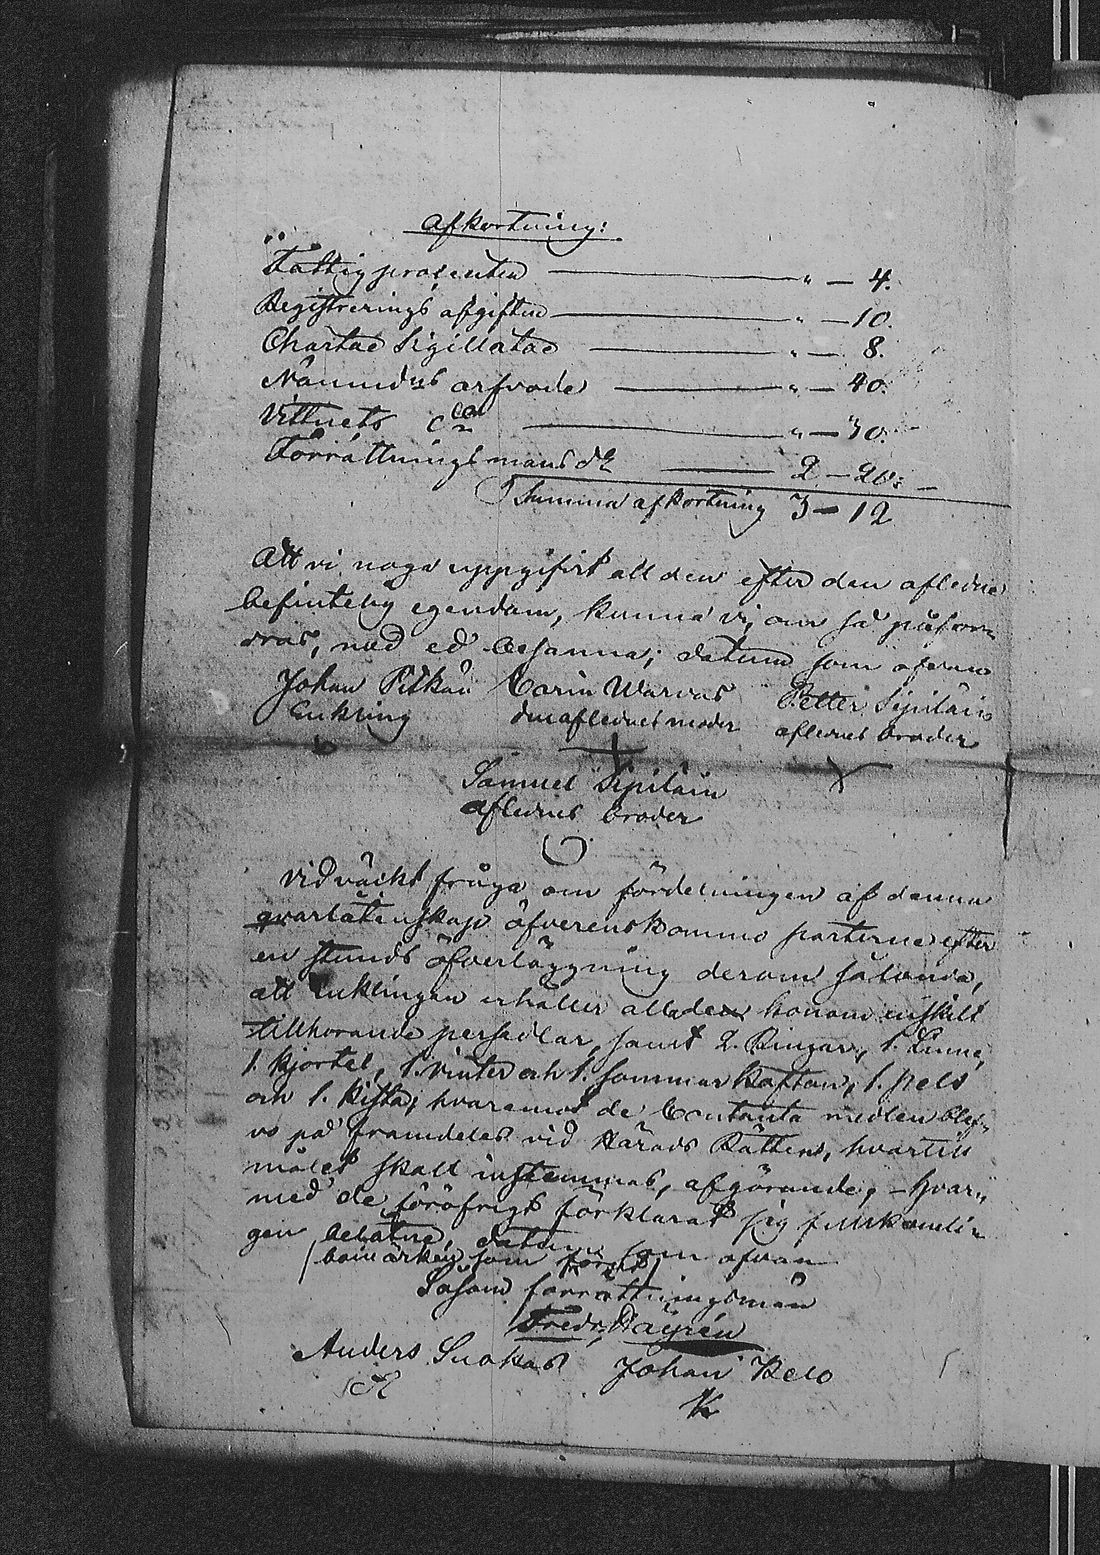 Afkortning:
Fattigprocenten — " — 4.
Registrerings afgiften — " — 10.
Chartae Sigillatae — " — 8.
Nämndens arfvode — " — 40.
Vittnets — " — 30.
Förrättningsmans do — 2 — 20.
Summa afkortning 3 — 12
Att vi noga uppgifvit all den efter den aflidne
befintelig egendom, kunna vi, om så påfor-
dras, med ed besanna; datum som ofvan
Johan Pitkäin Carin Warvas Petter Sipiläin
Enkling den aflednes moder aflednes broder
Samuel Sipiläin
aflednes broder
Vid väckt fråga om fördelningen af denna
qvarlåtenskap öfverenskommo parterne efter
en stunds öfverläggning derom sålunda,
att enklingen erhåller alla de honom enskilt
tillhörande persedlar, samt 2. Ringar, 1. Linne,
1. Kjortel, 1. Vinter och 1. sommar Kaftan, 1. pels
och 1. Kista; hvaremot de Contanta medlen blef-
vo på framdeles vid Härads Rätten, hvartill
målet skall instemmas, afgörande; – hvar-
med de föröfrigt förklarat sig fullkomli-
gen belåtne, datum som ofvan
(bomärken som förut)
Såsom förrättningsman
Fredr. Hayrén
Anders Suokas Johan Kelo
K